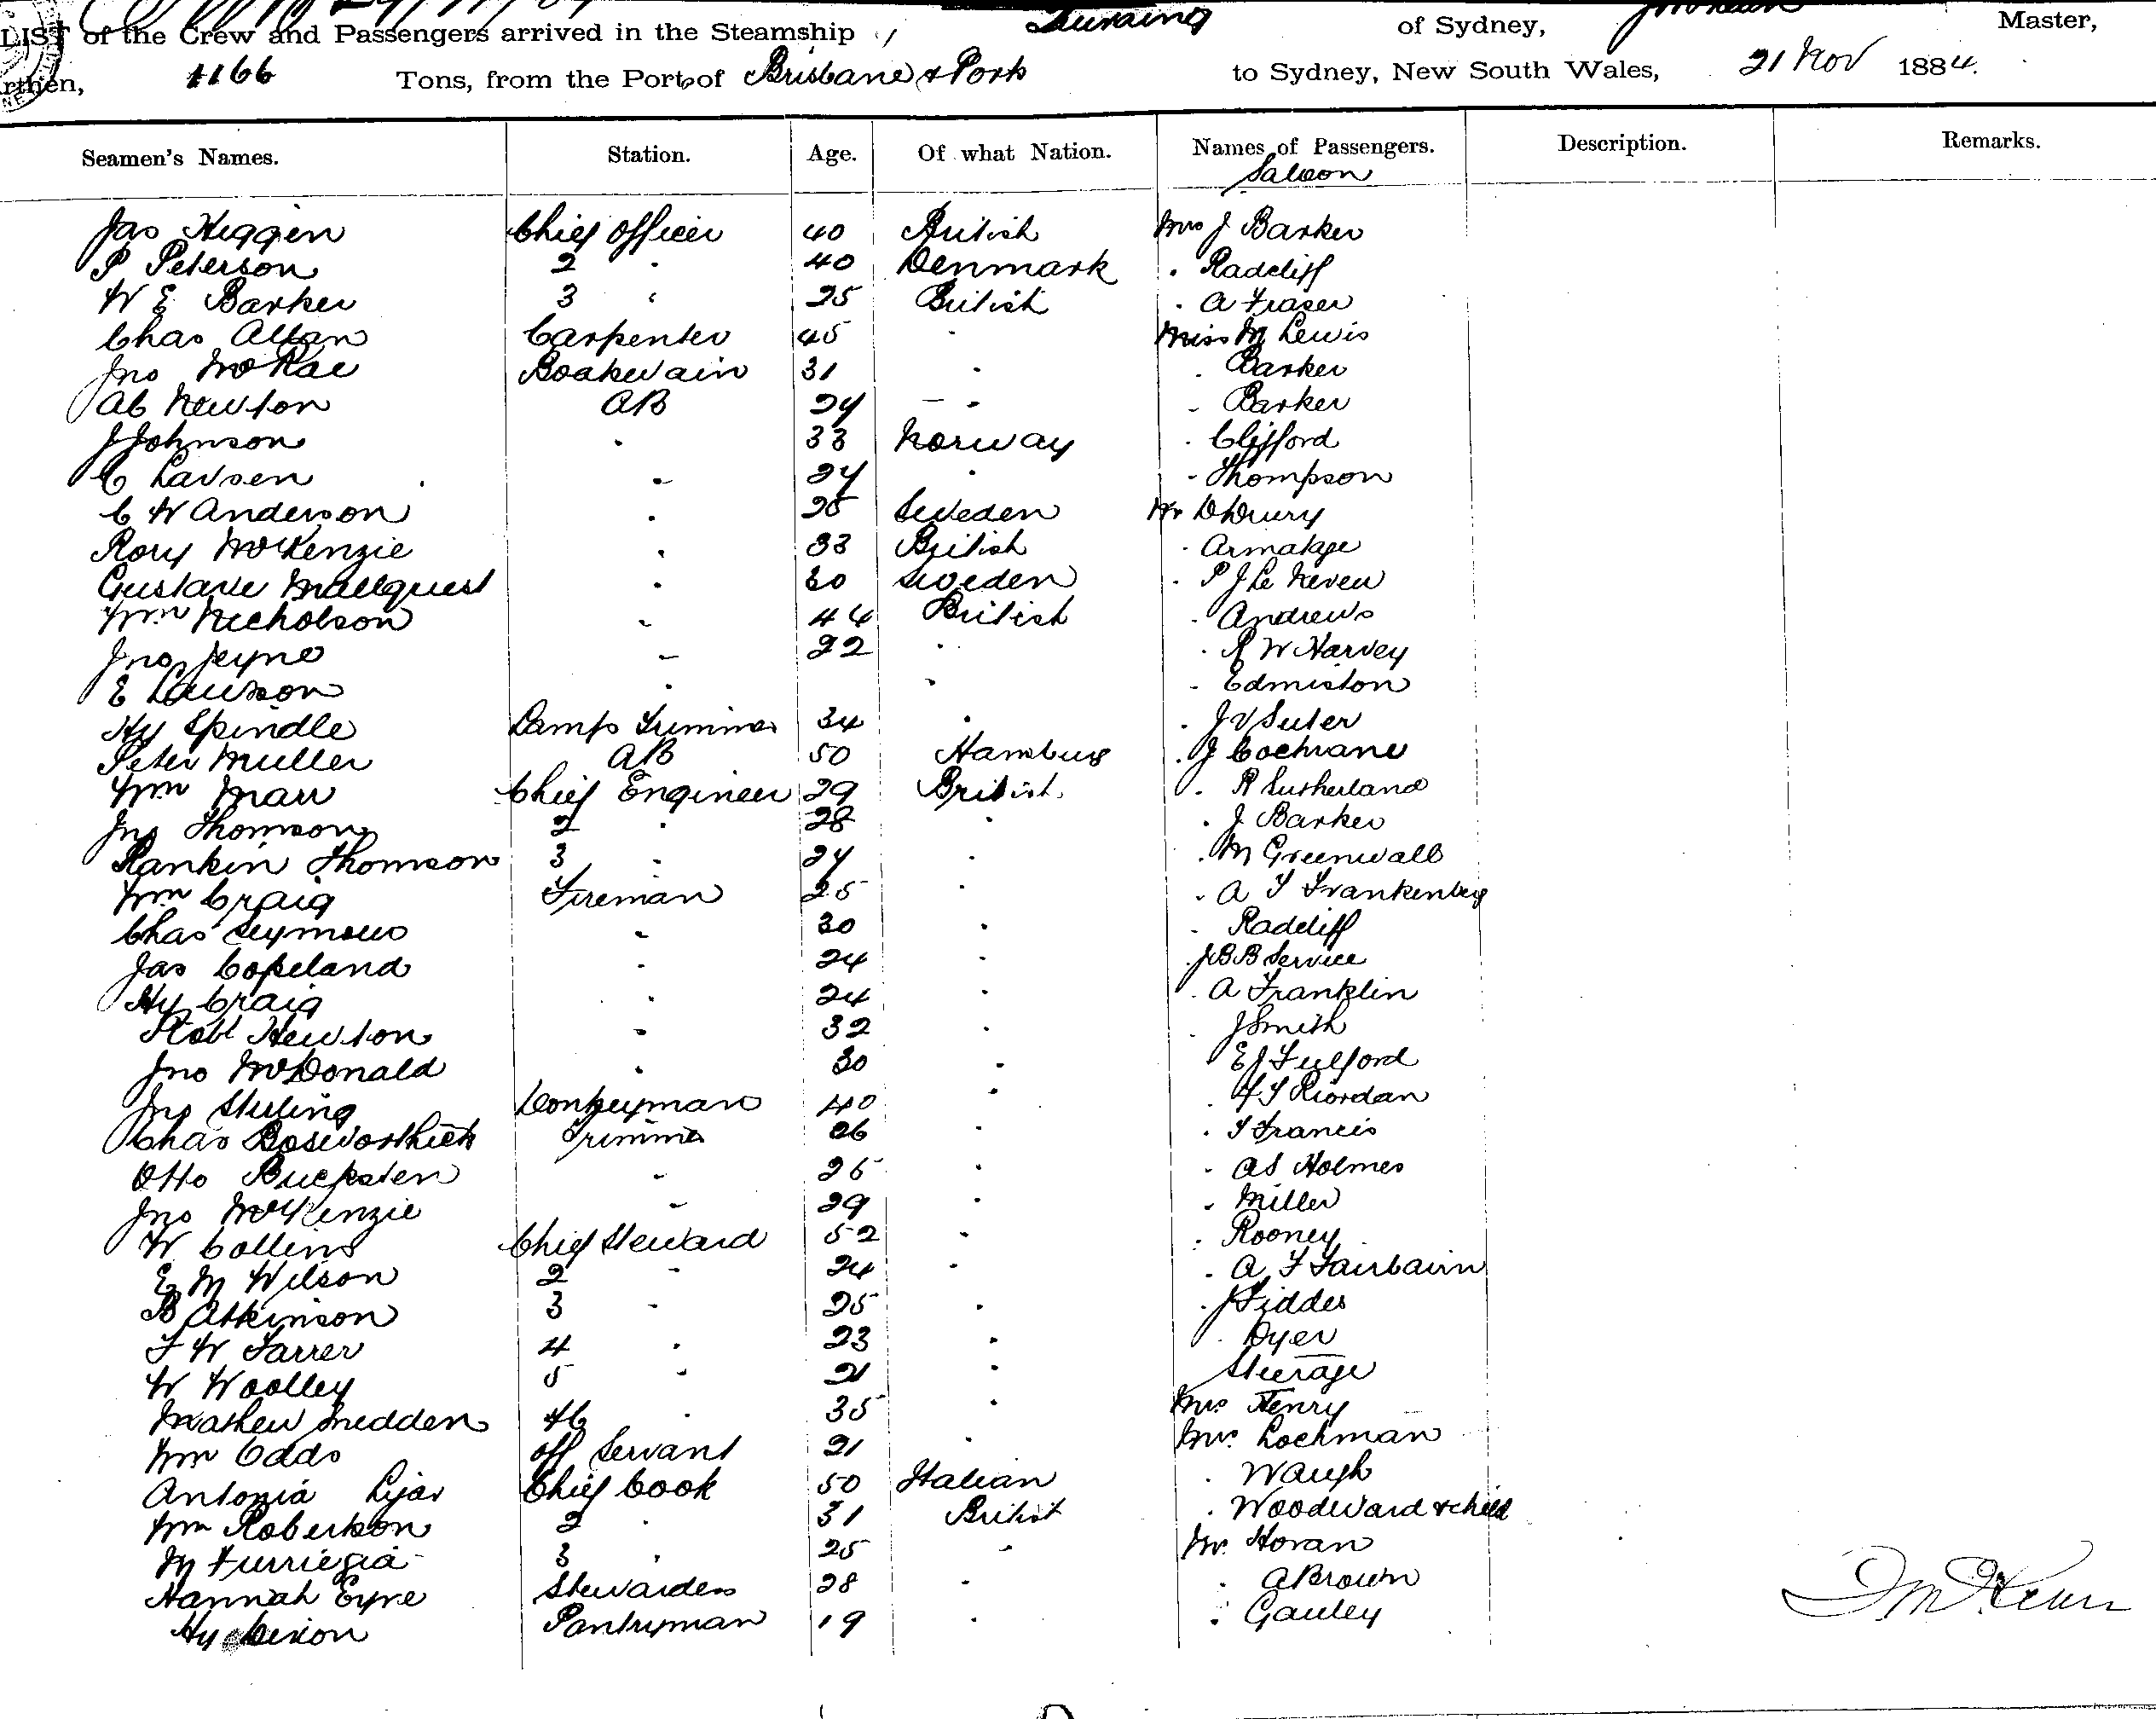 LIST of the Crew and Passengers arrived in the Steamship of Sydney, Master,
1166 Tons, from the Port of Brisbane & Ports to Sydney, New South Wales, 21 Nov 1884.
Seamen's Names. Station. Age. Of what Nation. Names of Passengers. Description. Remarks.
Saloon
Jas Higgin Chief Officer 40 British Mrs J Barker
P Peterson 2 " 40 Denmark " Radcliff
W E Barker 3 " 25 British " A Fraser
Chas Allan Carpenter 45 " Miss M Lewis
Jno McRae Boatswain 31 " " Barker
Ab Newton AB 24 " " Barker
J Johnson " 33 Norway " Clifford
C Larsen " 24 " " Thompson
C W Anderson " 25 Sweden Mr D Drury
Rory McKenzie " 33 British " Armatage
Gustave Mallquest " 30 Sweden " P J Le Neveu
Wm Nicholson " 44 British " Andrews
Jno Jeyne " 22 " " R W Harvey
E Lawson " " " Edmiston
Hy Spindle Lamp Trimmer 34 " " J V Suter
Peter Muller AB 50 Hamburg " J Cochrane
Wm Marr Chief Engineer 29 British " R Sutherland
Jno Thomson 2 " 28 " " J Barker
Rankin Thomson 3 " 24 " " M Greenwall
Wm Craig Fireman 25 " " A F Frankenberg
Chas Seymour " 30 " " Radcliff
Jas Copeland " 24 " " J B B Service
Hy Craig " 24 " " A Franklin
Robt Newton " 32 " " J Smith
Jno McDonald " 30 " " E J Fulford
Jno Stirling Donkeyman 40 " " Riordan
Chas Trimmer 26 " " F Francis
Otto " 25 " " A S Holmes
Jno McKenzie " 29 " " Miller
W Collins Chief Steward 52 " " Rooney
E M Wilson 2 " 24 " " A F Fairbairn
B Atkinson 3 " 25 " " J Fiddes
F W Farrer 4 " 23 " " Dyer
W Woolley 5 " 21 " Steerage
Mathew Snedden " 35 " Mrs Henry
Wm Odds off Servant 21 " Mrs Lochman
Antonia Chief Cook 50 Italian " Waugh
Wm Robertson 2 " 31 British " Woodward & child
M 3 " 25 " Mr Horan
Hannah Eyre Stewardess 28 " " A Brown
Hy Pantryman 19 " " Gauley